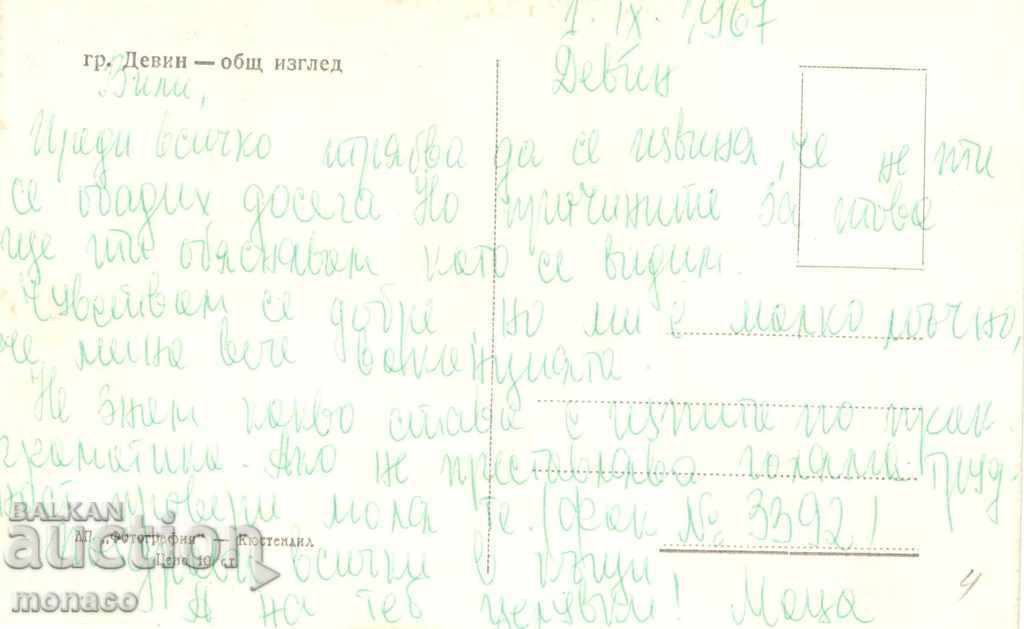 1. IX. 1967
гр. Девин — общ изглед
Девин
Вили,
Преди всичко трябва да се извиня, че не ти
се обадих досега. Но причините за това
ще ти обяснявам като се видим.
Чувствам се добре, но ми е малко мъчно,
че мина вече ваканцията.
Не знам какво става с изпита по прак.
граматика. Ако не представлява голяма труд-
ност провери моля те (фак № 33921
АП „Фотография" — Кюстендил
Цена 10 ст.
всички в къщи
А на теб целувки! Маца
4
BALKAN
auction
monaco